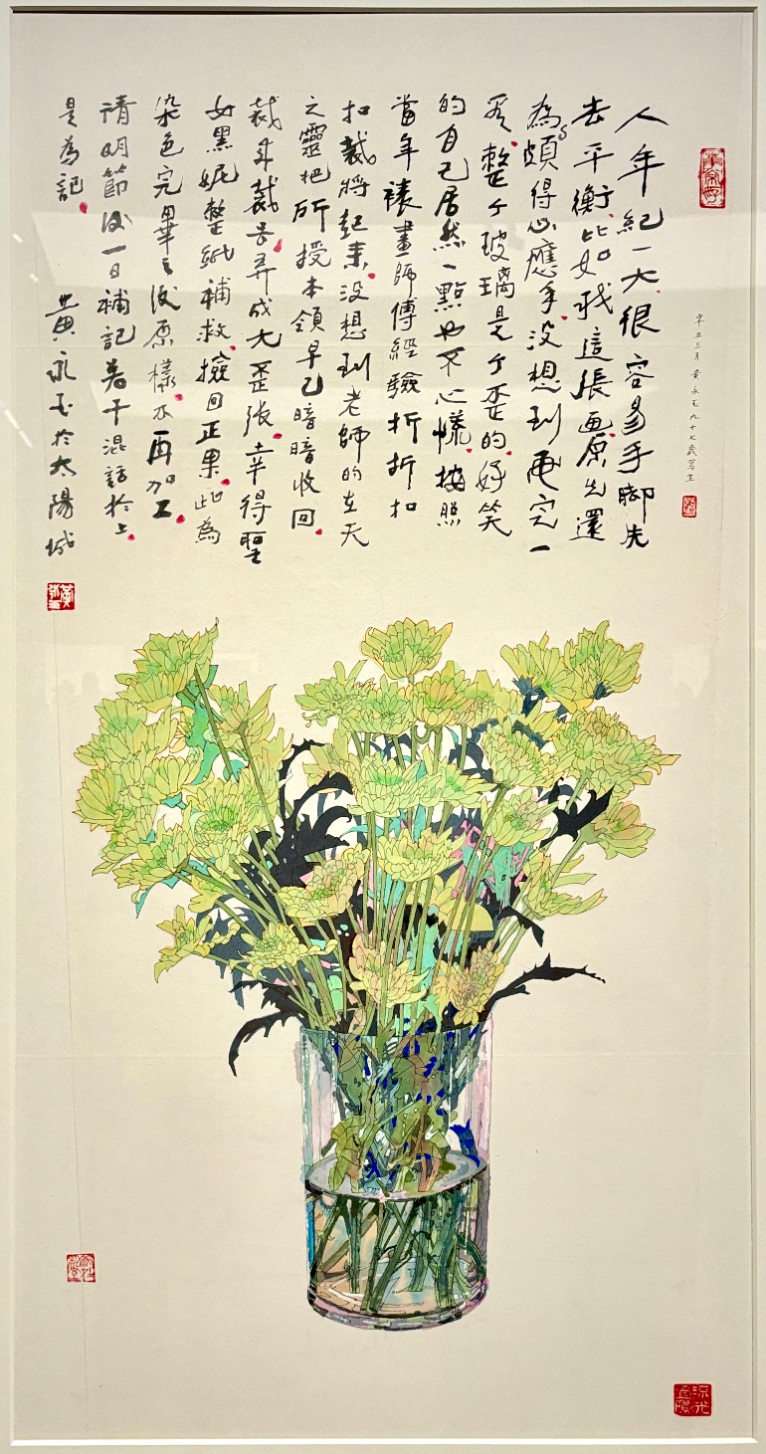 人年紀一大很容易手脚先
去平衡比如我這張画原出還
為頗得心應手没想到画完一
看整个玻璃是个歪的好笑
的自己居然一點也不心慌按照
當年裱畫師傅經驗折折扣
扣裁將起来没想到老師的在天
之靈把所授本領早已暗暗收回
裁来裁去弄成大歪張幸得聖
女黑妮整紙補救撿回正果此為
染色完畢之後原樣不再加工
清明節後一日補記若干混話於上
是為記
黄永玉於太陽城
辛丑三月黄永玉九十七歲寫生